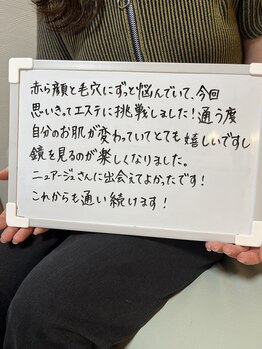 赤ら顔と毛穴にずっと悩んでいて、今回
思いきってエステに挑戦しました!通う度
自分のお肌が変わっていてとても嬉しいですし
鏡を見るのが楽しくなりました。
ニュアージュさんに出会えてよかったです!
これからも通い続けます!